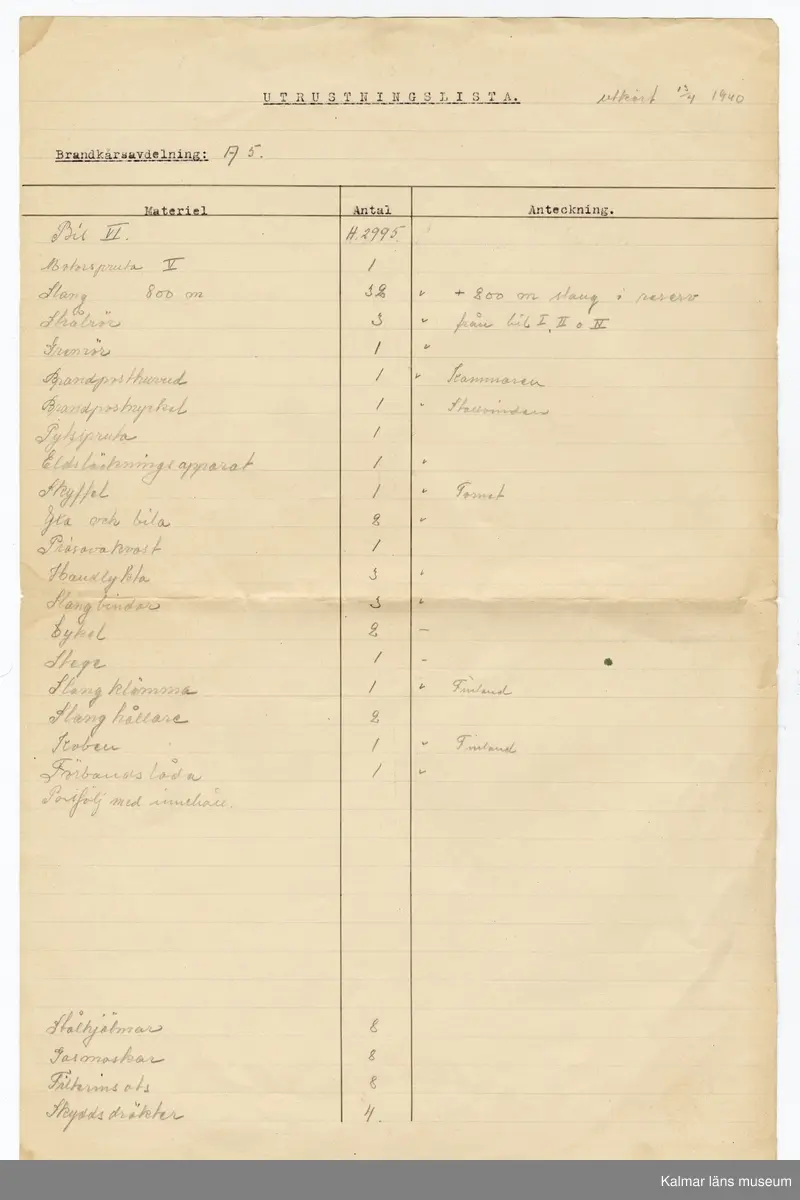 UTRUSTNINGSLISTA. utkört 13/4 1940
Brandkårsavdelning: A 5.
Materiel Antal Anteckning.
Bil VI. H.2995.
Motorspruta V 1
Slang 800 m 32 " + 800 m slang i reserv
Strålrör 3 " från bil I, II o IV
Grenrör 1 "
Brandposthuvud 1 " Kammaren
Brandpostnyckel 1 " Stallvinden
Pytsspruta 1
Eldsläckningsapparat 1 "
Skyffel 1 " Tornet
Yxa och bila 2 "
Piasavakvast 1
Handlykta 3 "
Slangbindor 3 "
Cykel 2 –
Stege 1 –
Slangklämma 1 " Finland
Slanghållare 2
Koben 1 " Finland
Förbandslåda 1 "
Portfölj med innehåll.
Stålhjälmar 8
Gasmaskar 8
Filterinsats 8
Skyddsdräkter 4.
Kalmar läns museum